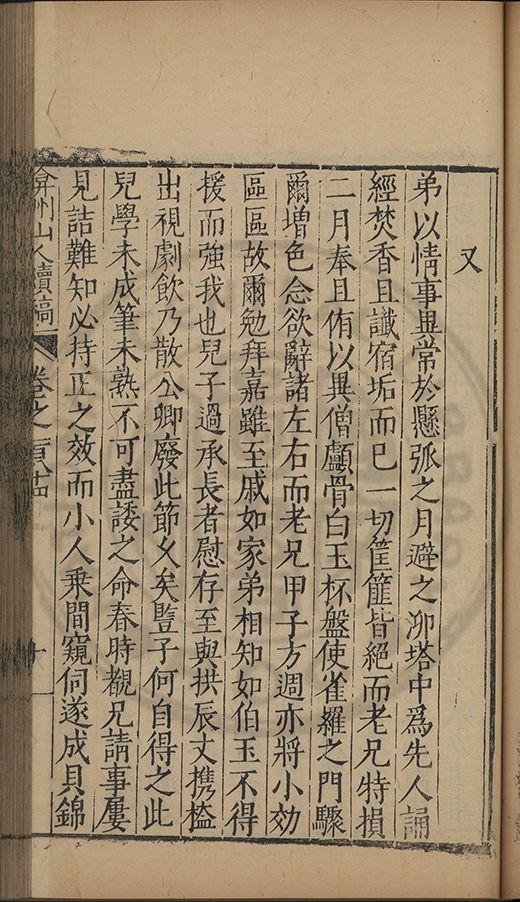 又
弟以情事異常於懸弧之月避之泖塔中為先人誦
經焚香且讖宿垢而已一切筐篚皆絕而老兄特損
二月奉且侑以異僧顱骨白玉杯盤使雀羅之門驟
爾增色念欲辭諸左右而老兄甲子方週亦將小効
區區故爾勉拜嘉雖至戚如家弟相知如伯玉不得
援而強我也兒子過承長者慰存至與拱辰丈携榼
出視劇飲乃散公卿廢此節久矣豎子何自得之此
兒學未成筆未熟不可盡諉之命春時覩兄請事屢
見詰難知必持正之效而小人乘間窺伺遂成貝錦
弇州山人續稿 卷之一百八十四 十